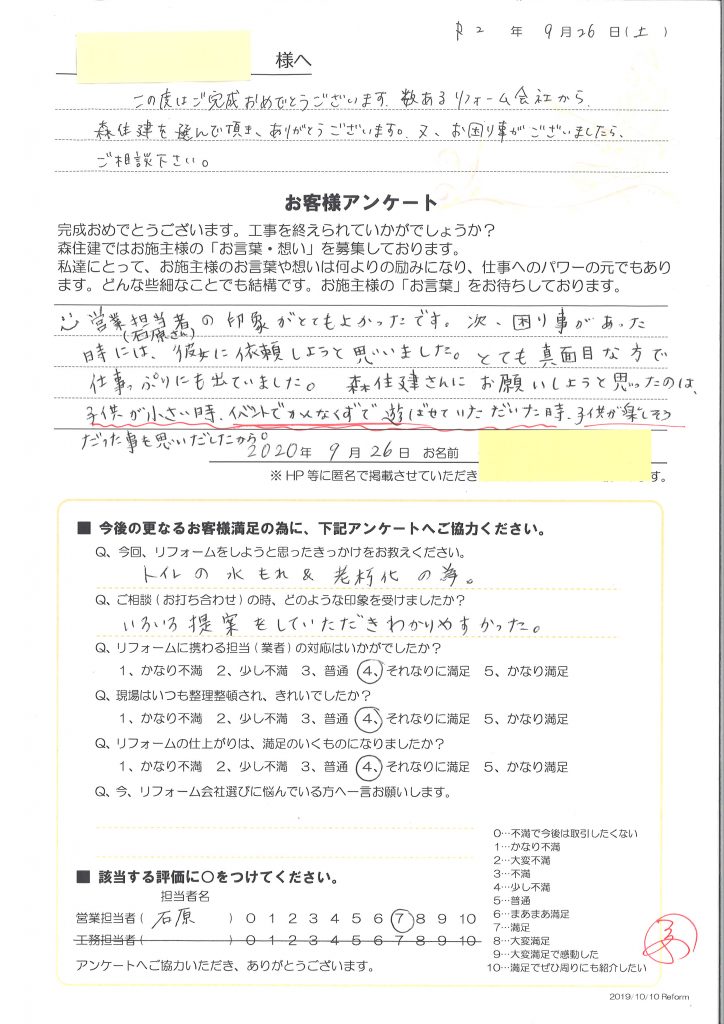 R2 年 9月26日(土)
様へ
この度はご完成おめでとうございます。数あるリフォーム会社から、
森住建を選んで頂き、ありがとうございます。又、お困り事がございましたら、
ご相談下さい。
お客様アンケート
完成おめでとうございます。工事を終えられていかがでしょうか?
森住建ではお施主様の「お言葉・想い」を募集しております。
私達にとって、お施主様のお言葉や想いは何よりの励みになり、仕事へのパワーの元でもあり
ます。どんな些細なことでも結構です。お施主様の「お言葉」をお待ちしております。
営業担当者の印象がとてもよかったです。次、困り事があった
(石原さん)
時には、彼女に依頼しようと思いました。とても真面目な方で
仕事っぷりにも出ていました。 森住建さんにお願いしようと思ったのは、
子供が小さい時、イベントでかんなくずで遊ばせていただいた時、子供が楽しそう
だった事も思いだしたから。
2020年 9月26日 お名前
※HP等に匿名で掲載させていただき
す。
■ 今後の更なるお客様満足の為に、下記アンケートへご協力ください。
Q、今回、リフォームをしようと思ったきっかけをお教えください。
トイレの水もれ & 老朽化の為。
Q、ご相談(お打ち合わせ)の時、どのような印象を受けましたか?
いろいろ提案をしていただきわかりやすかった。
Q、リフォームに携わる担当(業者)の対応はいかがでしたか?
1、かなり不満 2、少し不満 3、普通 4、それなりに満足 5、かなり満足
Q、現場はいつも整理整頓され、きれいでしたか?
1、かなり不満 2、少し不満 3、普通 4、それなりに満足 5、かなり満足
Q、リフォームの仕上がりは、満足のいくものになりましたか?
1、かなり不満 2、少し不満 3、普通 4、それなりに満足 5、かなり満足
Q、今、リフォーム会社選びに悩んでいる方へ一言お願いします。
■ 該当する評価に○をつけてください。
担当者名
営業担当者( 石原 ) 0 1 2 3 4 5 6 7 8 9 10
工務担当者( ) 0 1 2 3 4 5 6 7 8 9 10
アンケートへご協力いただき、ありがとうございます。
0…不満で今後は取引したくない
1…かなり不満
2…大変不満
3…不満
4…少し不満
5…普通
6…まあまあ満足
7…満足
8…大変満足
9…大変満足で感動した
10…満足でぜひ周りにも紹介したい
2019/10/10 Reform